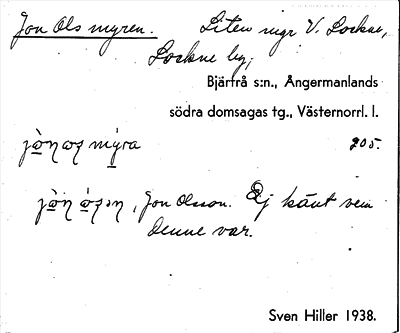 Jon Ols myren. Liten myr V. Lockne,
Lockne by,
Bjärtrå s:n., Ångermanlands
södra domsagas tg., Västernorrl. l.
mýra 205.
, Jon Olsson. Ej känt vem
denne var.
Sven Hiller 1938.